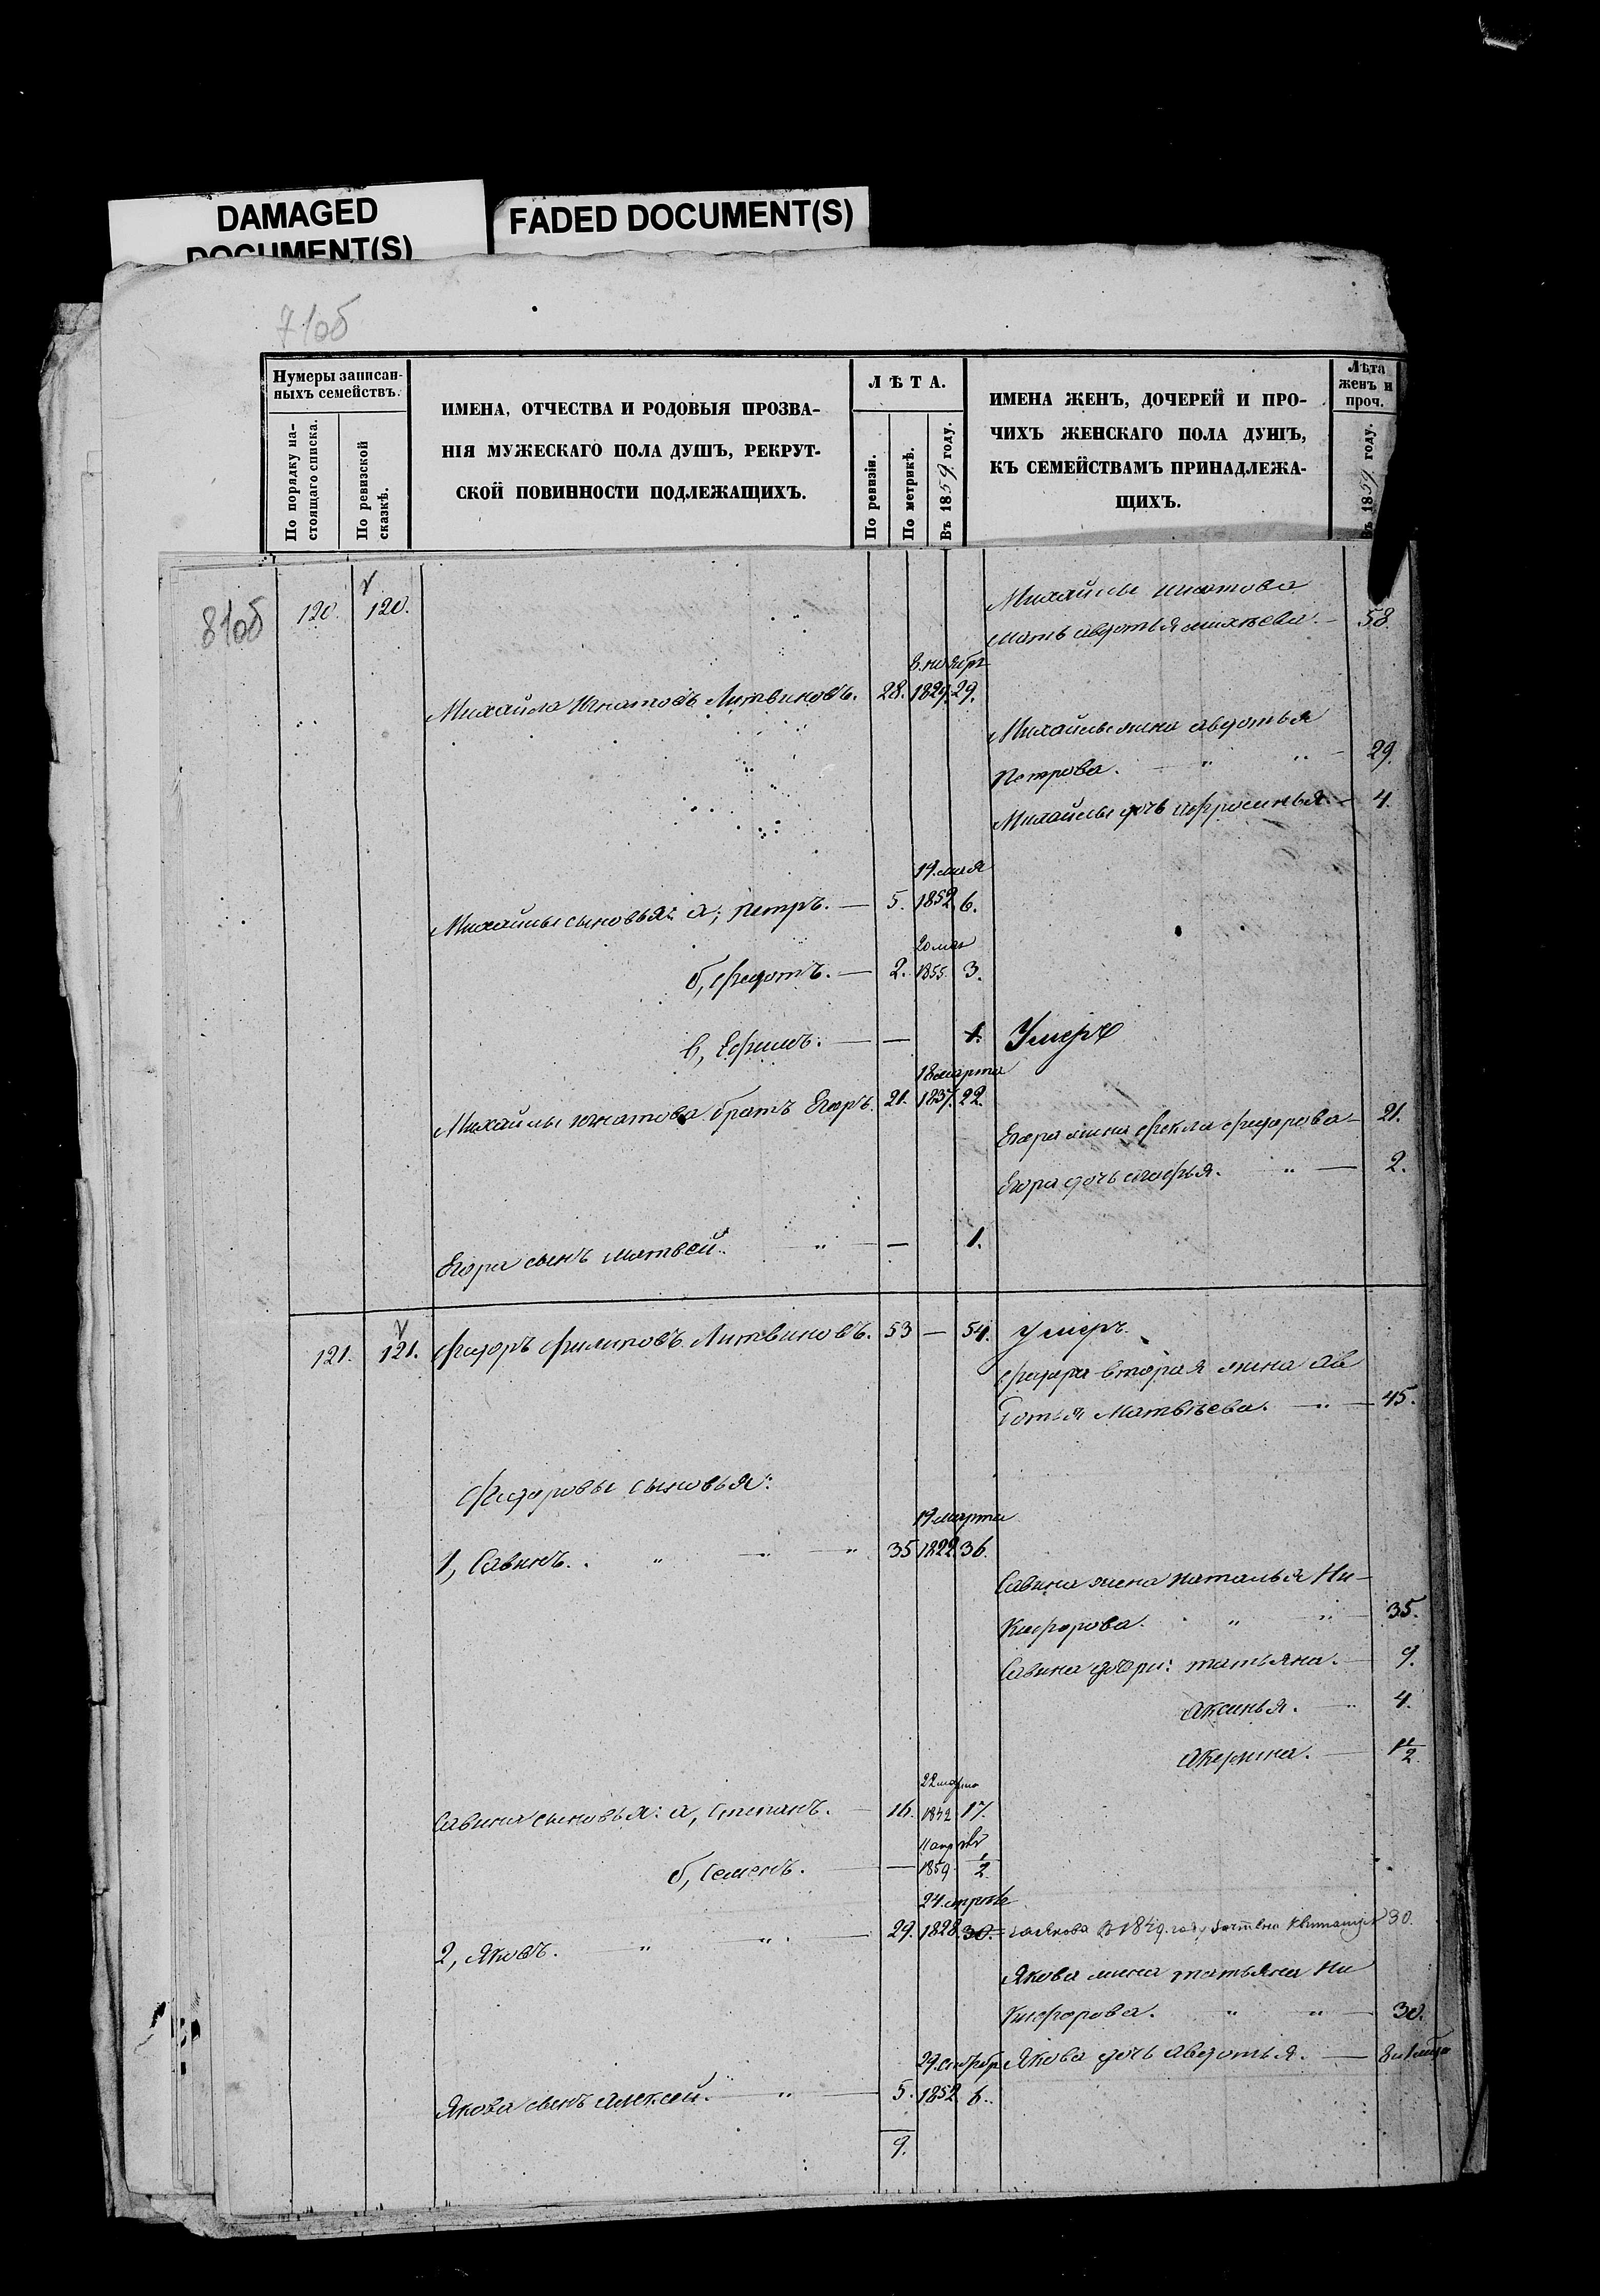 DAMAGED
DOCUMENT(S)
FADED DOCUMENT(S)
71об
Нумеры записан-
ныхъ семействъ.
По порядку на-
стоящаго списка.
По ревизской
сказкѣ.
ИМЕНА, ОТЧЕСТВА И РОДОВЫЯ ПРОЗВА-
НІЯ МУЖЕСКАГО ПОЛА ДУШЪ, РЕКРУТ-
СКОЙ ПОВИННОСТИ ПОДЛЕЖАЩИХЪ.
ЛѢТА.
По ревизіи.
По метрикѣ.
Въ 1859 году.
ИМЕНА ЖЕНЪ, ДОЧЕРЕЙ И ПРО-
ЧИХЪ ЖЕНСКАГО ПОЛА ДУШЪ,
КЪ СЕМЕЙСТВАМЪ ПРИНАДЛЕЖА-
ЩИХЪ.
Лѣта
женъ и
проч.
Въ 1859 году.
81об
120. 120.
Михайлы игнатова
мать авдотья михѣева. — 58.
8. ноября
Михайла Игнатовъ Литвиновъ. 28. 1829. 29.
Михайлы жена авдотья
Петрова. — " " — 29.
Михайлы дочь афросинья. — 4.
19. мая
Михайлы сыновья: а, петръ. — 5. 1852 6.
20 мая
б, федотъ. — 2. 1855. 3.
в, Ефимъ. — — 1. Умеръ
18 марта
Михайлы игнатова братъ Егоръ. 21. 1837. 22.
Егора жена фекла федорова — 21.
Егора дочь софья. " — 2.
Егора сынъ матвей. " — 1.
121. 121. федоръ филиповъ Литвиновъ. 53 — 54. умеръ.
федора вторая жена ав
дотья Матвѣева. — " — 45.
Федоровы сыновья:
19 марта
1, Савинъ. " — " 35 1822 36.
Савина жена наталья Ни-
кифорова. " " — 35.
Савина дочери: татьяна. — 9.
Аксинья. — 4.
Акерина. —
22 марта
Савина сыновья: а, Степанъ. — 16. 1842 17.
б, Семенъ. — 1859. 1/2
24. марта
2, Яковъ. — " " — 29. 1828. 30. = за Якова в 1849. году зачтена квитанція 30.
Якова жена татьяна Ни
кифорова. " " — 30.
Якова дочь авдотья. —
29. сентября
Якова сынъ алексей. " — 5. 1852 6.
9.